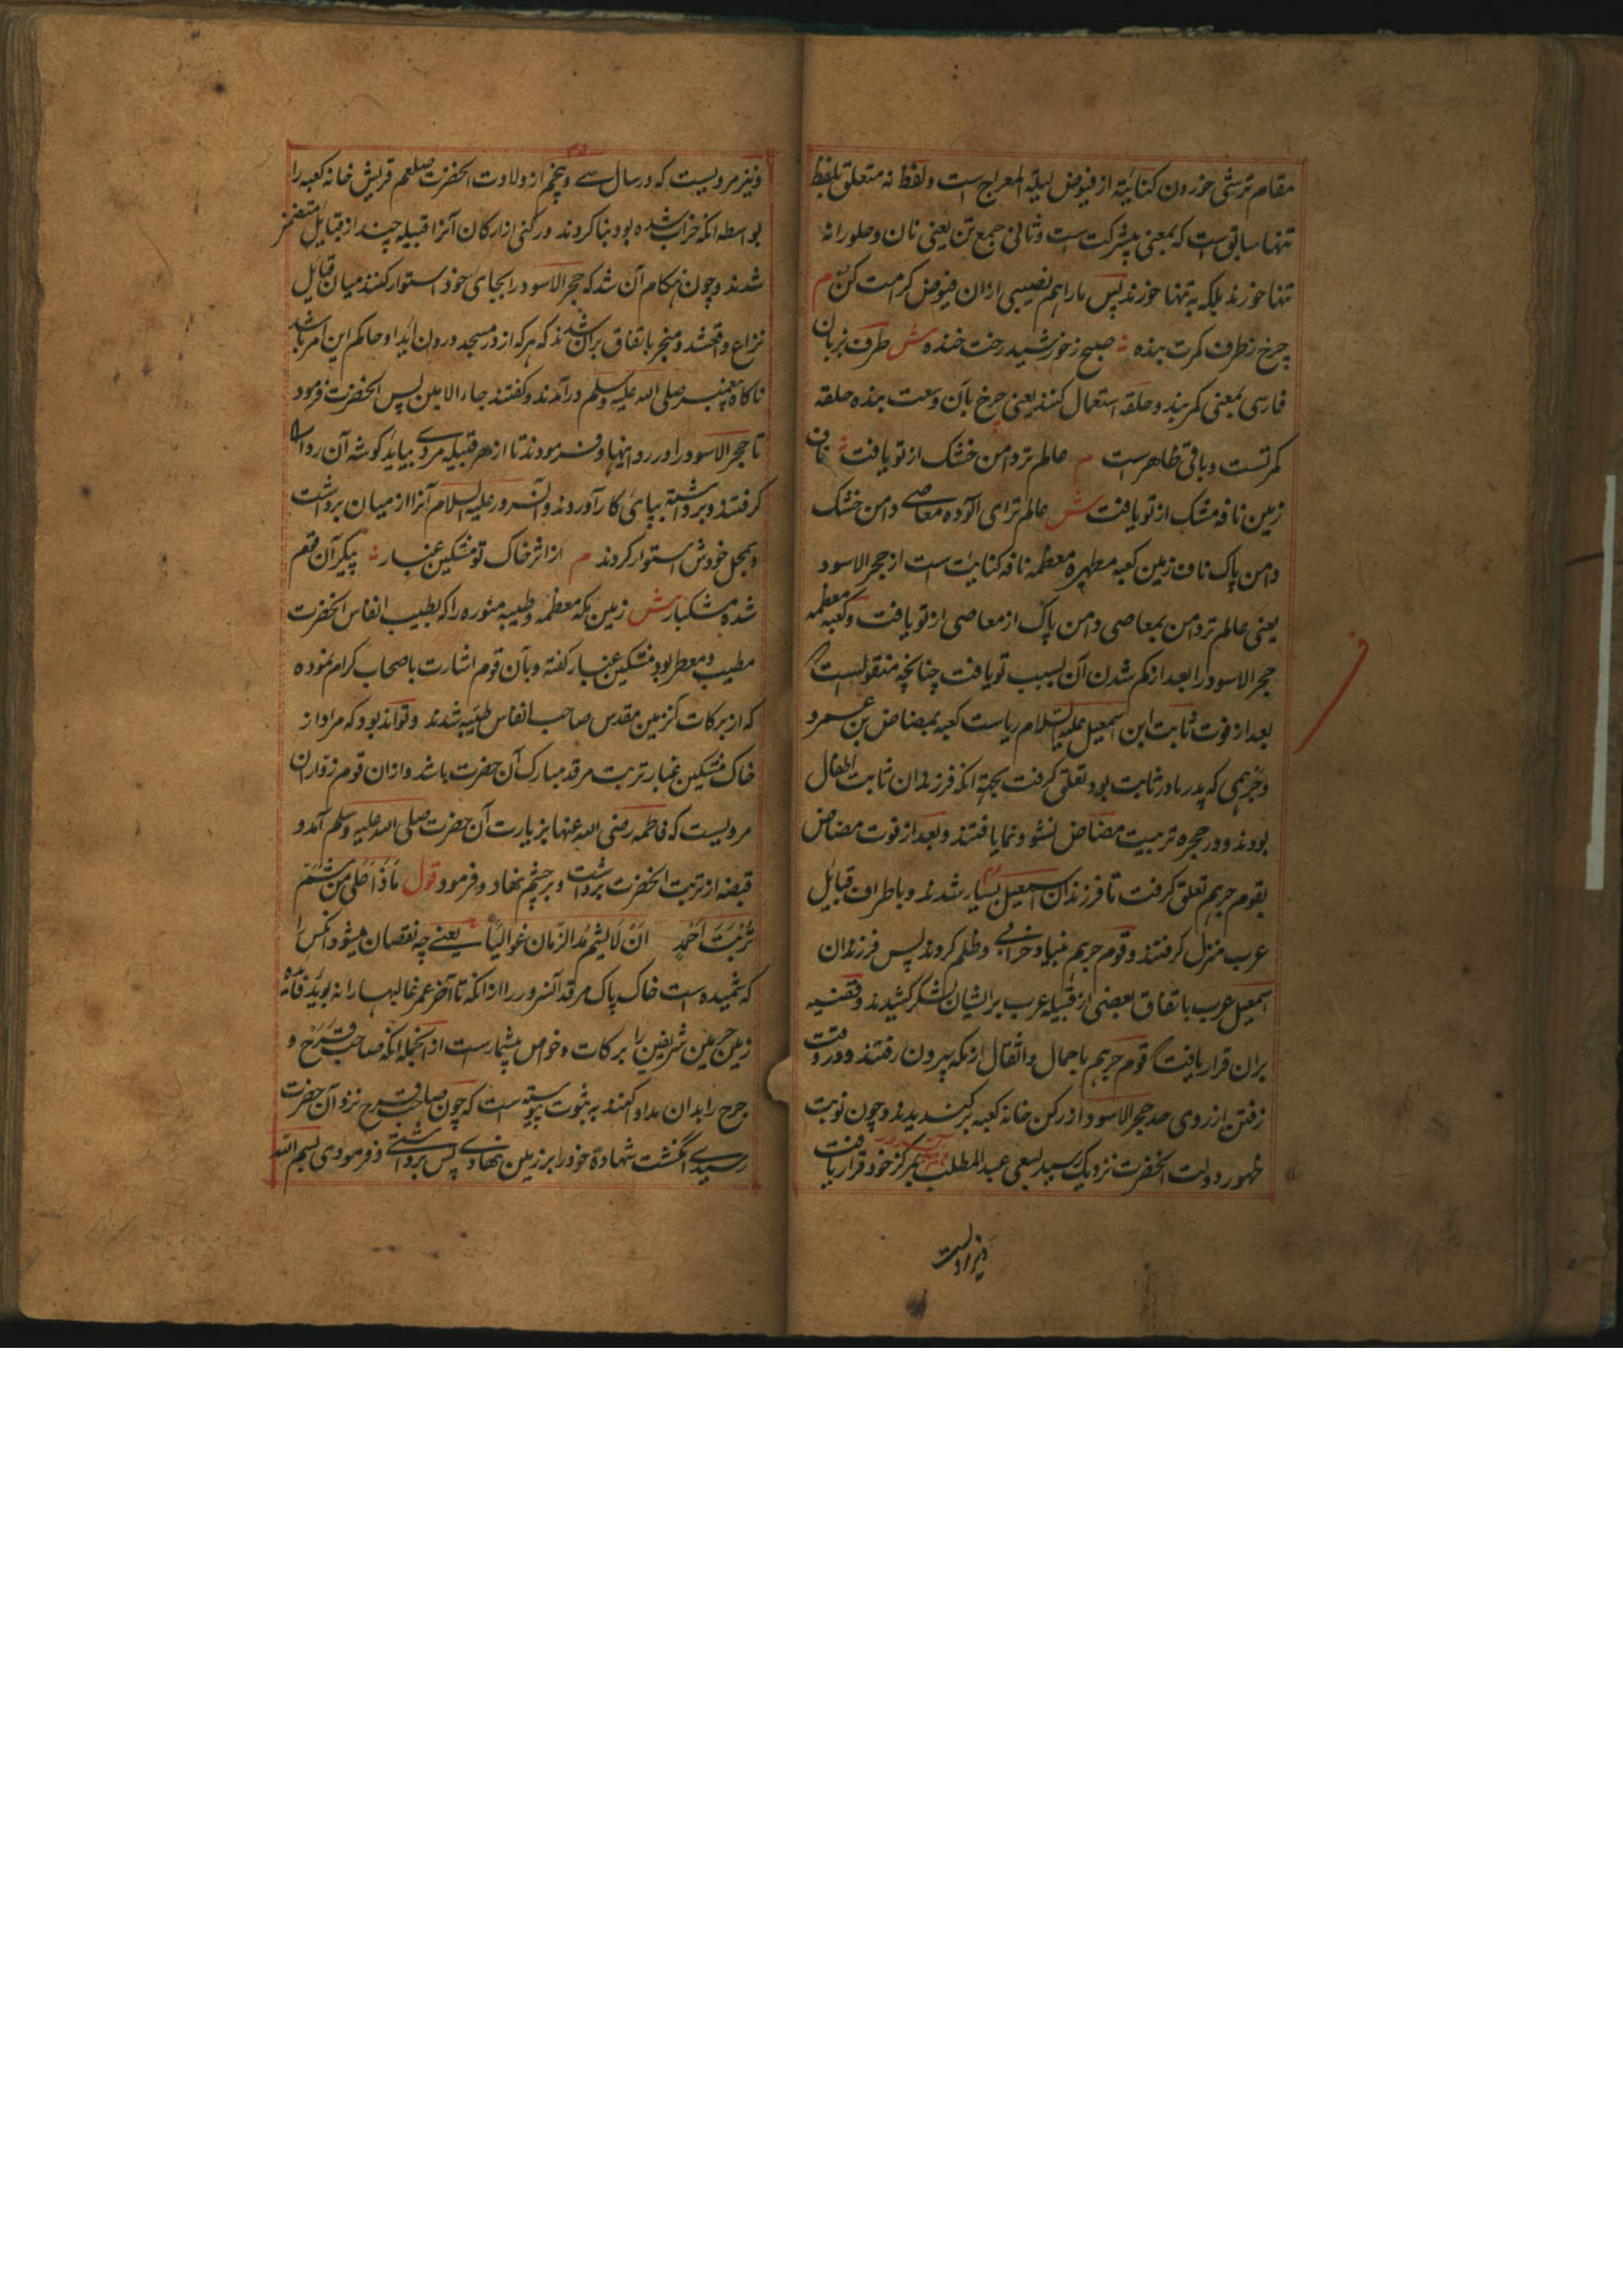 مقام ترشی خوردن کنایته از فیوض لیلة المعراج است و لفظ نه متعلق بلفظ
تنها سابق است که بمعنی بی شرکت است و ثانی جمع تن یعنی نان و حلورا نه
تنها خورند بلکه به تنها خورند پس ما را هم نصیبی ازان فیوض کرامت کن م
چرخ ز طرف کمرت بنده صبح ز خورشید رخت خنده ش طرف بزبان
فارسی بمعنی کمربند و حلقه استعمال کنند یعنی چرخ بآن وسعت بنده حلقه
کمر تست و باقی ظاهر است م عالم تر دامن خشک از تو یافت ناف
زمین نافه مشک از تو یافت ش عالم تر ای آلوده معاصی دامن خشک
دامن پاک ناف زمین کعبه مطهره معظمه نافه کنایت است از حجر الاسود
یعنی عالم تر دامن بمعاصی دامن پاک از معاصی از تو یافت و کعبه معظمه
حجر الاسود را بعد از کم شدن آن بسبب تو یافت چنانچه منقولست که
بعد از فوت ثابت ابن اسمعیل علیه السلام ریاست کعبه بمضاض بن عمرو
و جرهمی که پدر مادر ثابت بود تعلق کرفت بجهة انکه فرزندان ثابت اطفال
بودند و در حجره تربیت مضاض نشو و نما یافتند و بعد از فوت مضاض
بقوم جرهم تعلق کرفت تا فرزندان اسمعیل بسیار شدند و باطراف قبایل
عرب منزل کرفتند و قوم جرهم بنیاد خرابی و ظلم کردند پس فرزندان
اسمعیل عرب باتفاق بعضی از قبیله عرب بر ایشان لشکر کشیدند و قضیه
بران قرار یافت که قوم جرهم باحمال و اثقال از مکه بیرون رفتند و در وقت
رفتن از روی حد حجر الاسود از رکن خانه کعبه بر کندیدند و چون نوبت
ظهور دولت انحضرت نزدیک رسید بسعی عبد المطلب بمرکز خود قرار یافت
و نیز مرویست
و نیز مرویست که در سال سی و پنجم از ولادت انحضرت صلعم قریش خانه کعبه را
بواسطه انکه خراب شده بود بنا کردند و رکنی از ارکان آنرا قبیله چند از قبایل
شدند و چون هنکام آن شد که حجر الاسود را بجای خود استوار کنند میان قبایل
نزاع واقع شد و منجر باتفاق بران شدند که هر که از در مسجد درون اید او حاکم این امر باشد
ناکاه پیغمبر صلی الله علیه و سلم در آمدند و کفتند جاء الامین پس انحضرت فرمود
تا حجر الاسود را در ردا نهاد و فرمودند تا از هر قبیله مردی بیاید کوشه آن ردا
کرفتند و برداشته بپای کار آوردند و آن سرور علیه السلام آنرا از میان برداشت
و بمحل خودش استوار کردند م از اثر خاک تو مشکین غبار پیکر آن قوم
شده مشکبار ش زمین مکه معظمه و طیبه منوره را که بطیب انفاس انحضرت
مطیب و معطر بود مشکین غبار کفته و بآن قوم اشارت باصحاب کرام نموده
که از برکات زمین مقدس صاحب انفاس طیبه شدند و تواند بود که مراد از
خاک مشکین غبار تربت مرقد مبارک آن حضرت باشد و ازان قوم زواران
مرویست که فاطمه رضی الله عنها بزیارت آن حضرت صلی الله علیه و سلم آمد و
قبضه از تربت انحضرت برداشت و بر چشم نهاد و فرمود قول ماذا علی من شم
تربت احمد ان لا یشم مد الزمان غوالیا یعنی چه نقصان میشود انکس را
که شمیده است خاک پاک مرقد آنسرور را از انکه تا آخر عمر غالیها را نبوید
زمین حرمین شریفین را برکات و خواص بیشمار است از انجمله انکه صاحب قرح و
جرح را بدان مداوا کنند به ثبوت پیوسته است که چون صاحب قرح نزد آن حضرت
رسیدی انکشت شهادة خود را بر زمین نهادی پس برداشتی و فرمودی بسم الله